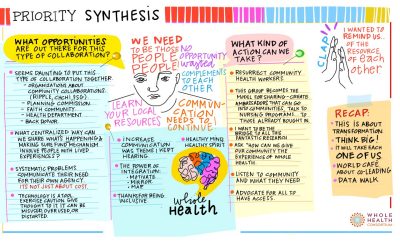 PRIORITY SYNTHESIS
WHAT OPPORTUNITIES
ARE OUT THERE FOR THIS
TYPE OF COLLABORATION?
SEEMS DAUNTING TO PUT THIS
TYPE OF COLLABORATION TOGETHER:
ORGANIZATIONS ABOUT
COMMUNITY COLLABORATIONS.
PLANNING COMMISSION
FAITH COMMUNITY
HEALTH DEPARTMENT
BACK DONOR
WHAT CENTRALIZED WAY CAN
WE SHARE WHAT'S HAPPENING &
MAKING SURE FUND MECHANISM
INVOLVE PEOPLE WITH LIVED
EXPERIENCES?
SYSTEMATIC PROBLEMS
COMMUNICATE THEIR NEED
FOR THEIR OWN AGENCY.
ITS NOT JUST ABOUT COST.
TECHNOLOGY IS A TOOL
EXERCISE CAUTION. GIVE
THOUGHT TO IT. IT CAN BE
MISUSED, OVER USED, OR
WE NEED
TO BE THOSE
PEOPLE
PEOPLE!
NO
OPPORTUNITY
WASTED
COMPLEMENTS TO
EACH
OTHER
LEARN
YOUR LOCAL
RESOURCES
COMMUN-
ICATION
NEEDS TO
CONTINUE
INCREASE
COMMUNICATION
WAS THEME I KEPT
HEARING.
THE POWER OF
INTEGRATION:
MOTIVATE
MIRROR
MAP
THANKS FOR BEING
INCLUSIVE
HEALTHY MIND
HEALTHY SPIRIT
whole
Health
WHAT KIND OF
ACTION CAN WE
TAKE?
RESURRECT COMMUNITY
HEALTH WORKERS.
THIS GROUP BECOMES THE
MODEL FOR ENGAGING - CREATE
AMBASSADORS THAT CAN GO
INTO COMMUNITIES, TALK TO
NURSING PROGRAMS... TO
THOSE ALREADY BOUGHT IN.
I WANT TO BE THE
BRIDGE TO ALL THIS
FANTASTIC RESEARCH
ASK "HOW CAN WE GIVE
OUR COMMUNITY THE
EXPERIENCE OF WHOLE
HEALTH.
LISTEN TO COMMUNITY
AND WHAT THEY NEED
ADVOCATE FOR ALL TO
HAVE ACCESS.
CLAP!
I WANTED TO
REMIND US
OF THE
RESOURCE
OF EACH
OTHER
RECAP:
THIS IS ABOUT
TRANSFORMATION.
THINK BIG!
IT WILL TAKE EACH
ONE OF US
WORLD CAFE
ABOUT CO-LEADING
DATA WALK
WHOLE
HEALTH
CONSORTIUM